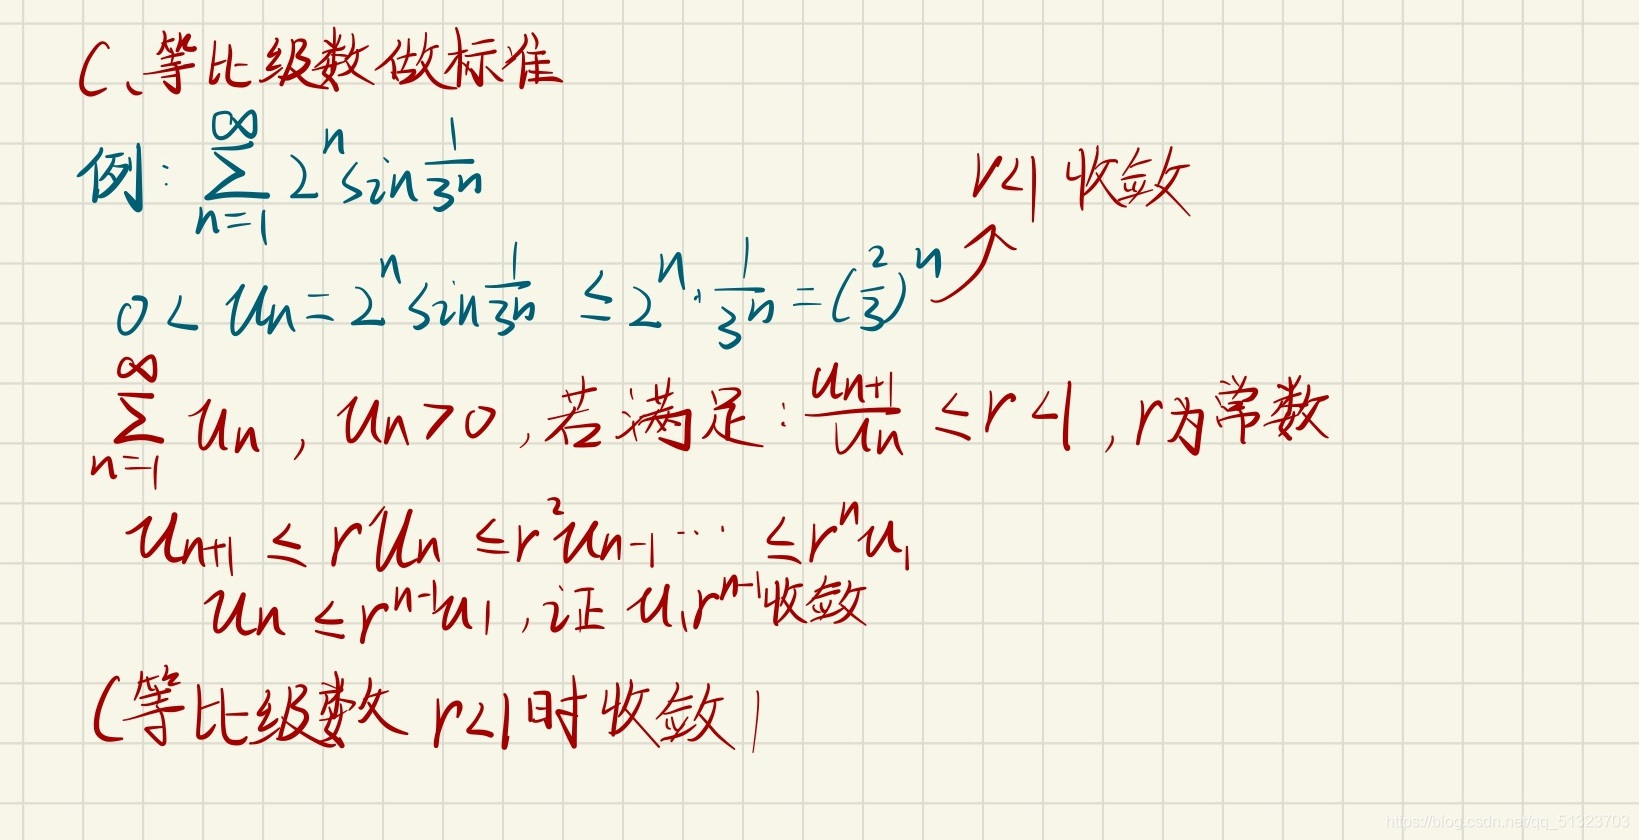 C、等比级数做标准
例: ∑_{n=1}^{∞} 2^n sin 1/3^n
r<1 收敛
0 < u_n = 2^n sin 1/3^n ≤ 2^n · 1/3^n = (2/3)^n
∑_{n=1}^{∞} u_n , u_n > 0 , 若满足: u_{n+1}/u_n ≤ r < 1 , r为常数
u_{n+1} ≤ r u_n ≤ r^2 u_{n-1} ··· ≤ r^n u_1
u_n ≤ r^{n-1} u_1 , 证 u_1 r^{n-1} 收敛
(等比级数 r<1时收敛)
https://blog.csdn.net/qq_51323703